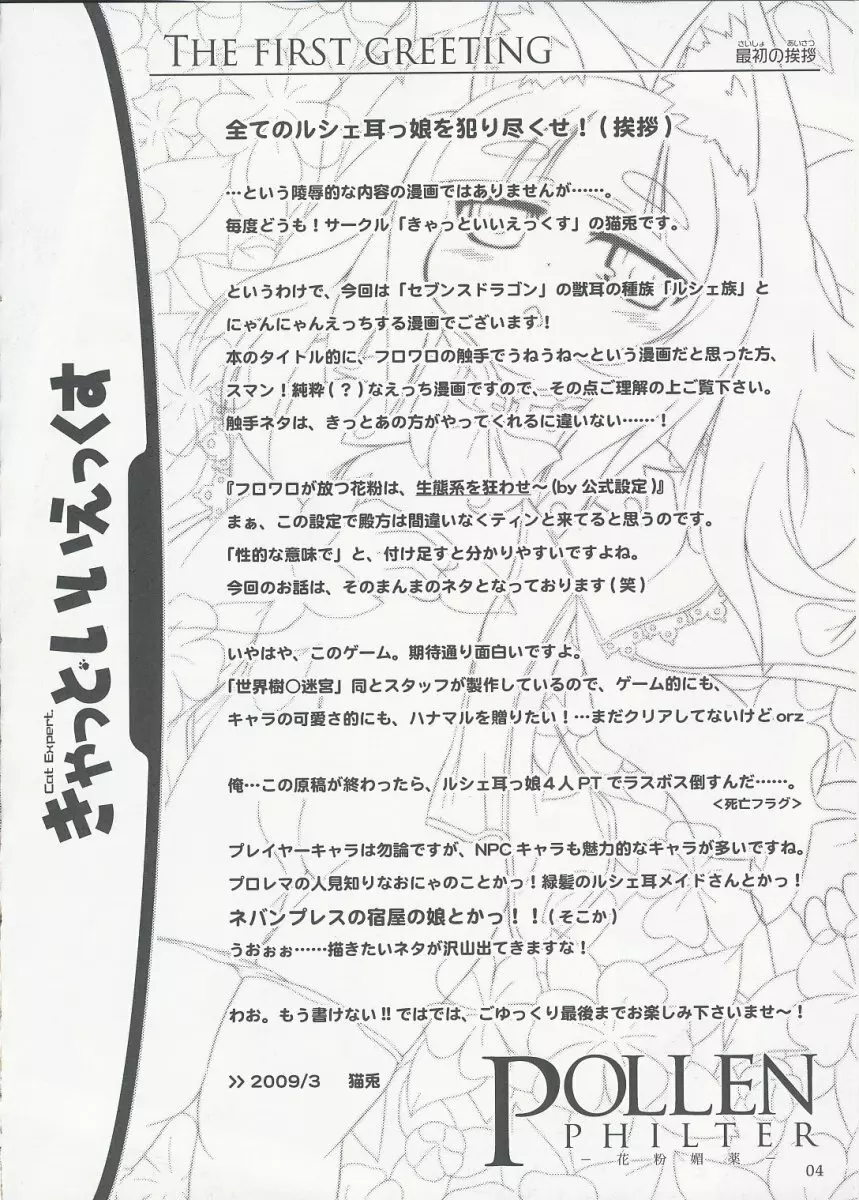 THE FIRST GREETING
さいしょ あいさつ
最初の挨拶
全てのルシェ耳っ娘を犯り尽くせ！(挨拶)
…という陵辱的な内容の漫画ではありませんが……。
毎度どうも！サークル「きゃっといいえっくす」の猫兎です。
というわけで、今回は「セブンスドラゴン」の獣耳の種族「ルシェ族」と
にゃんにゃんえっちする漫画でございます！
本のタイトル的に、フロワロの触手でうねうね〜という漫画だと思った方、
スマン！純粋(？)なえっち漫画ですので、その点ご理解の上ご覧下さい。
触手ネタは、きっとあの方がやってくれるに違いない……！
『フロワロが放つ花粉は、生態系を狂わせ〜(by 公式設定)』
まぁ、この設定で殿方は間違いなくティンと来てると思うのです。
「性的な意味で」と、付け足すと分かりやすいですよね。
今回のお話は、そのまんまのネタとなっております(笑)
いやはや、このゲーム。期待通り面白いですよ。
「世界樹〇迷宮」同とスタッフが製作しているので、ゲーム的にも、
キャラの可愛さ的にも、ハナマルを贈りたい！…まだクリアしてないけど orz
俺…この原稿が終わったら、ルシェ耳っ娘４人 PT でラスボス倒すんだ……。
＜死亡フラグ＞
プレイヤーキャラは勿論ですが、NPC キャラも魅力的なキャラが多いですね。
プロレマの人見知りなおにゃのことかっ！緑髪のルシェ耳メイドさんとかっ！
ネバンプレスの宿屋の娘とかっ！！(そこか)
うおぉぉ……描きたいネタが沢山出てきますな！
わお。もう書けない!! ではでは、ごゆっくり最後までお楽しみ下さいませ〜！
>> 2009/3 猫兎
きゃっといいえっくす
Cat Expert.
POLLEN
PHILTER
－花粉媚薬－
04